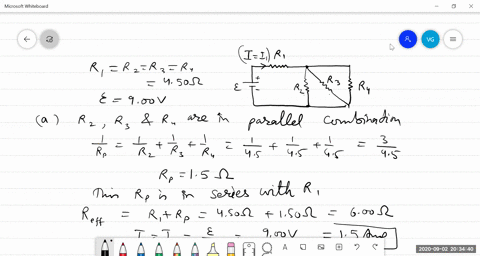 Microsoft Whiteboard
VG
(I = I₁) R₁
R₁ = R₂ = R₃ = R₄
= 4.50Ω
ε = 9.00V
ε
+
-
R₂
R₃
R₄
(a) R₂, R₃ & R₄ are in parallel combination
1/Rp = 1/R₂ + 1/R₃ + 1/R₄ = 1/4.5 + 1/4.5 + 1/4.5 = 3/4.5
Rp = 1.5 Ω
This Rp is in series with R₁
Reff = R₁ + Rp = 4.50Ω + 1.50Ω = 6.00Ω
I = I₁ = ε = 9.00V = 1.5 Amp
2020-09-02 20:34:40